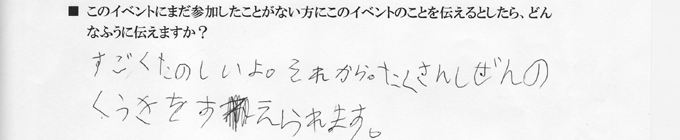 ■ このイベントにまだ参加したことがない方にこのイベントのことを伝えるとしたら、どん
なふうに伝えますか？
すごくたのしいよ。それから。たくさんしぜんの
くうきをすえられます。